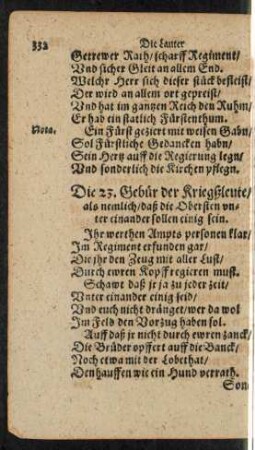 332 Die Lauter
Getrewer Rath/ scharff Regiment/
Vnd sicher Gleit an allem End.
Welchr Herr sich dieser stück befleist/
Der wird an allem ort gepreist/
Vnd hat im gantzen Reich den Ruhm/
Er hab ein statlich Fürstenthum.
Nota. Ein Fürst geziert mit weisen Gabn/
Sol Fürstliche Gedancken habn/
Sein Hertz auff die Regierung legn/
Vnd sonderlich die Kirchen pflegn.
Die 23. Gebür der Kriegßleute/
als nemlich/ daß die Obersten vn-
ter einander sollen einig sein.
Ihr werthen Ampts personen klar/
Im Regiment erfunden gar/
Die jhr den Zeug mit aller Lust/
Durch ewren Kopff regieren must.
Schawt daß je ja zu jeder zeit/
Vnter einander einig seid/
Vnd euch nicht dränget/ wer da wol
Im Feld den Vorzug haben sol.
Auff daß jr nicht durch ewren zanck/
Die Brüder opffert auff die Banck/
Noch etwa mit der Lobethat/
Den hauffen wie ein Hund verrath.
Son-